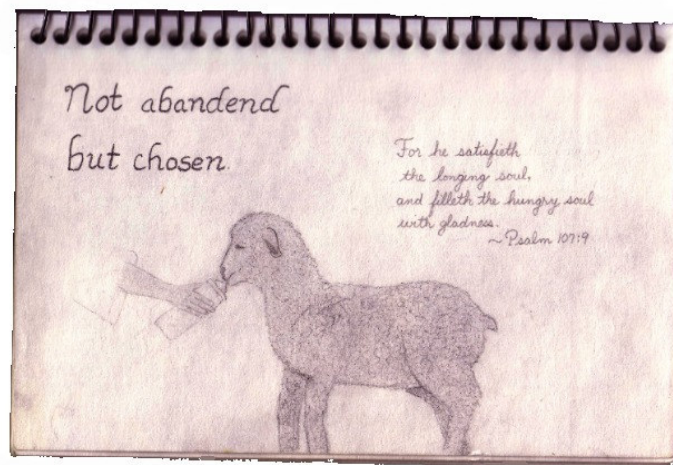 Not abandend
but chosen.
For he satisfieth
the longing soul,
and filleth the hungry soul
with gladness.
~ Psalm 107:9